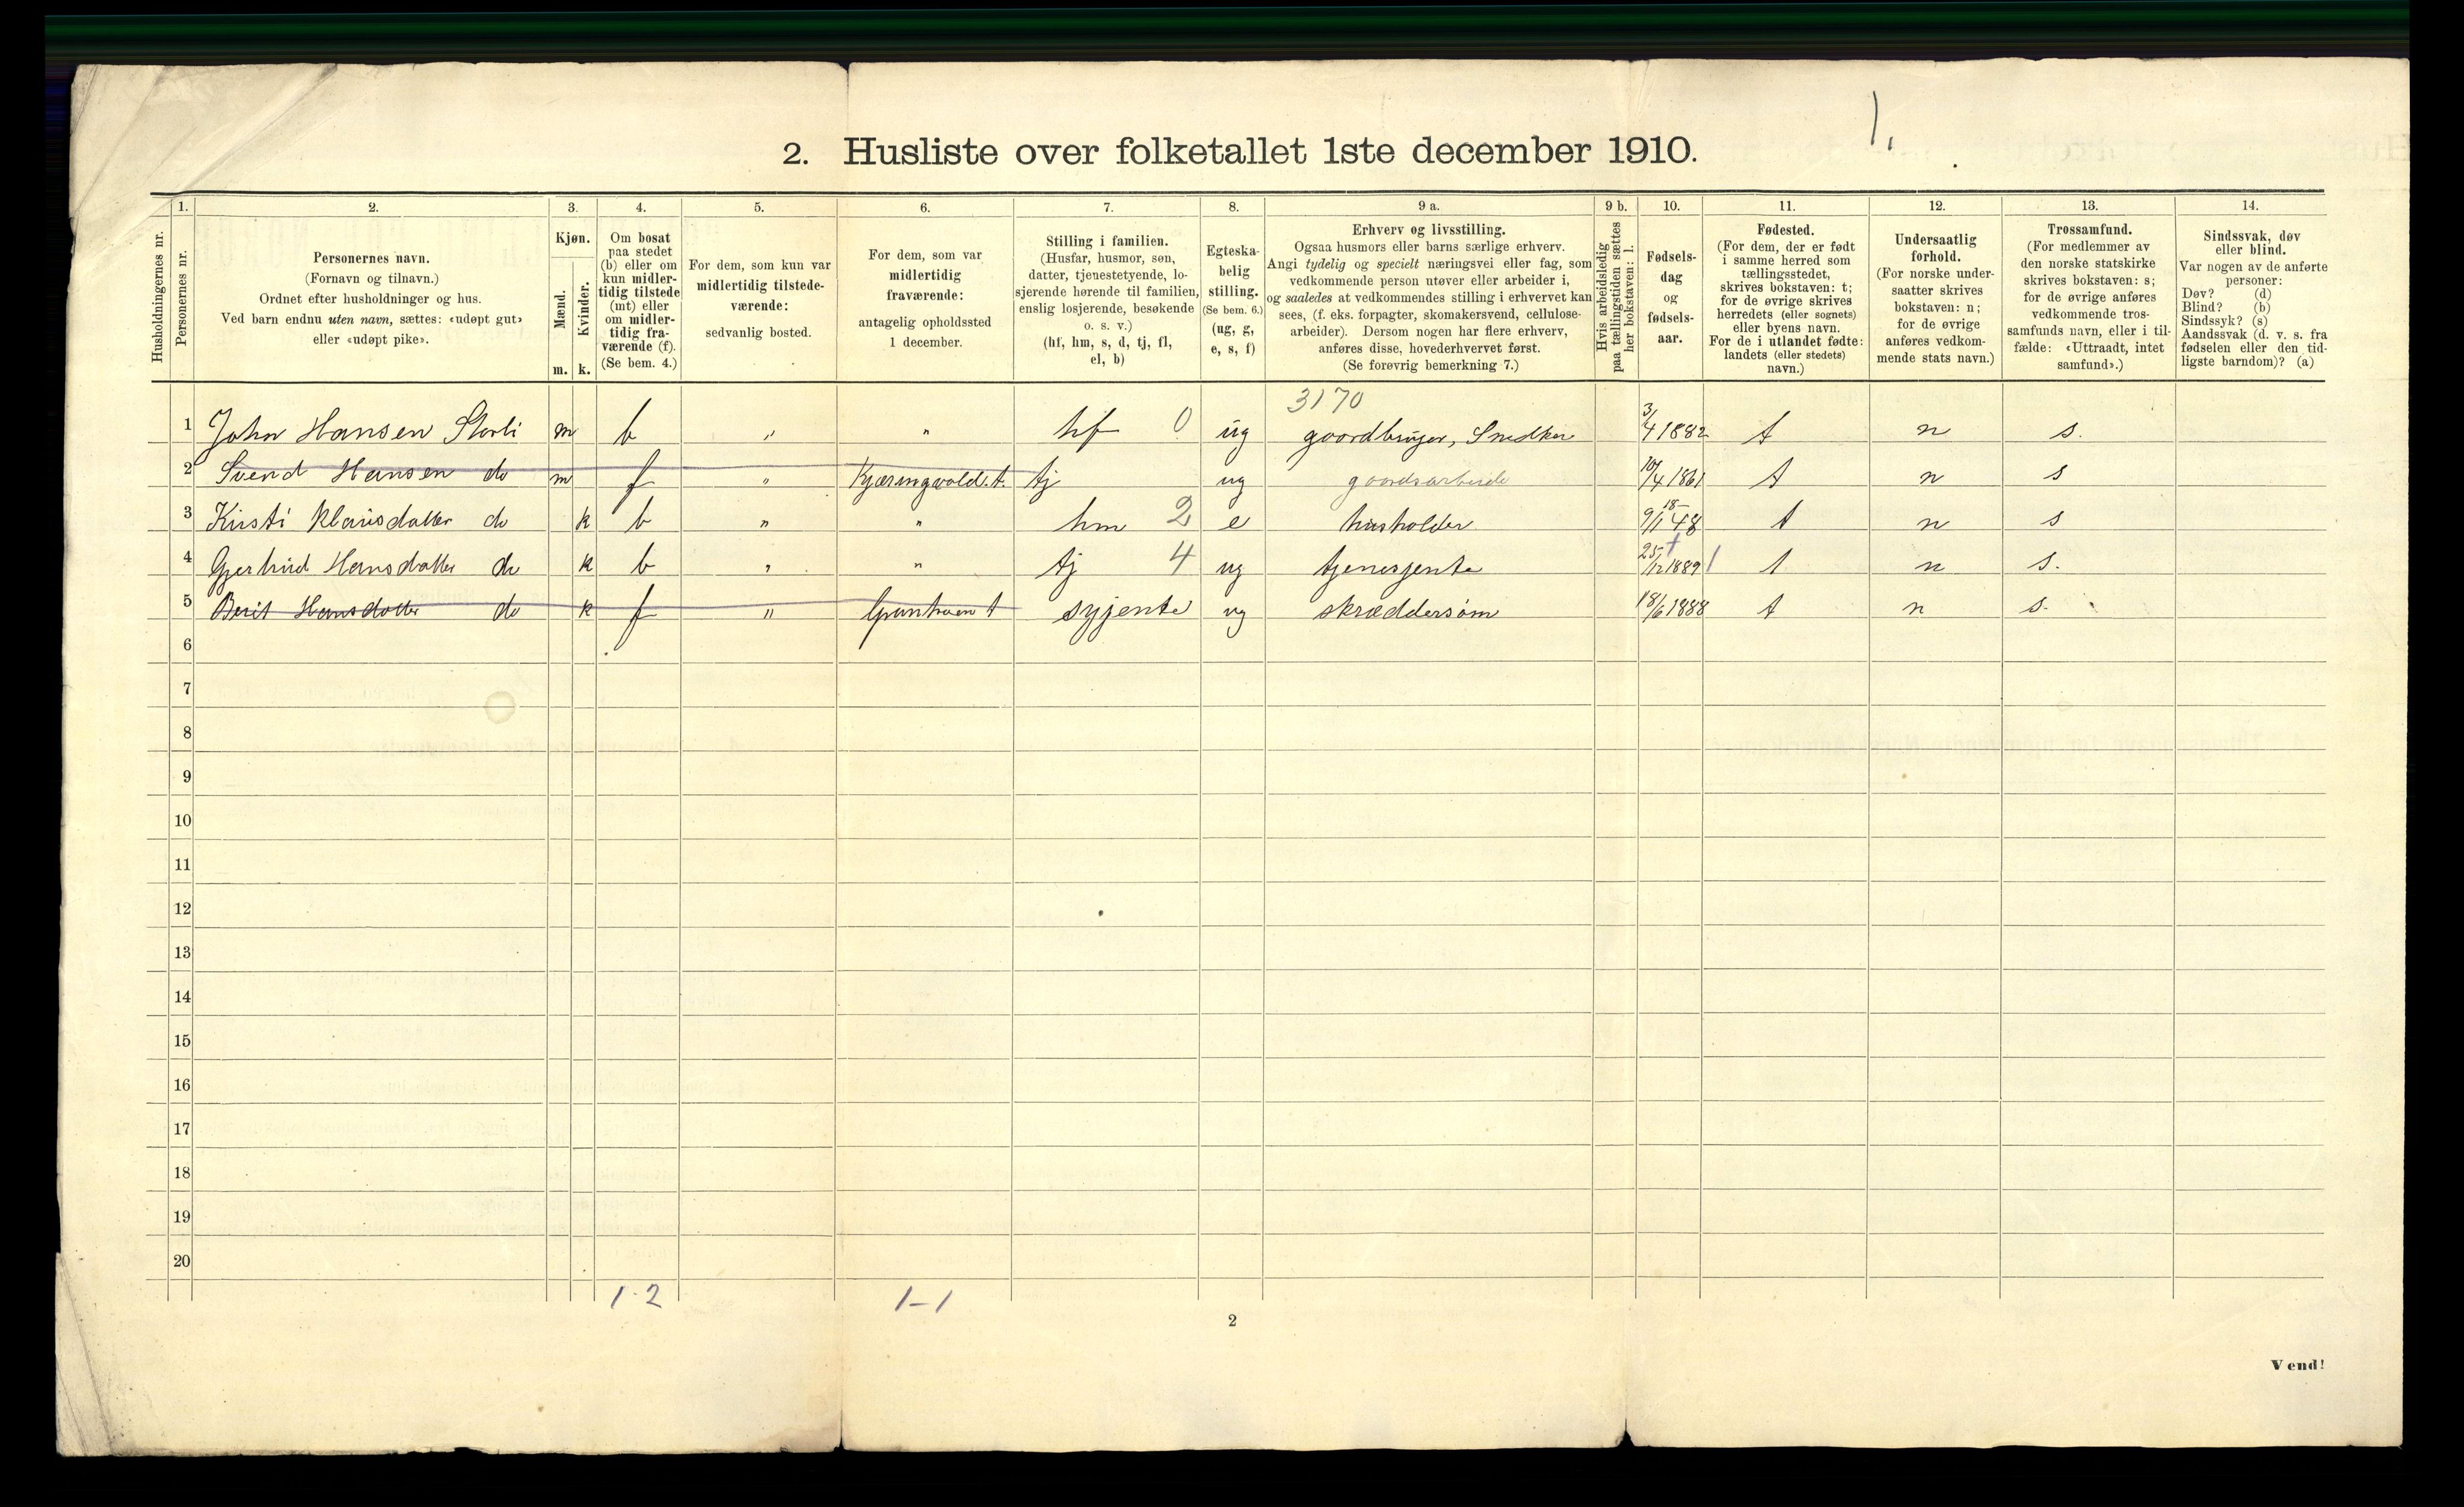 1.
2. Husliste over folketallet 1ste december 1910.
Husholdningernes nr.
1. Personernes nr.
2. Personernes navn. (Fornavn og tilnavn.) Ordnet efter husholdninger og hus. Ved barn endnu uten navn, sættes: «udøpt gut» eller «udøpt pike».
3. Kjøn. Mænd. m. Kvinder. k.
4. Om bosat paa stedet (b) eller om kun midlertidig tilstede (mt) eller om midlertidig fraværende (f). (Se bem. 4.)
5. For dem, som kun var midlertidig tilstedeværende: sedvanlig bosted.
6. For dem, som var midlertidig fraværende: antagelig opholdssted 1 december.
7. Stilling i familien. (Husfar, husmor, søn, datter, tjenestetyende, losjerende hørende til familien, enslig losjerende, besøkende o. s. v.) (hf, hm, s, d, tj, fl, el, b)
8. Egteskabelig stilling. (Se bem. 6.) (ug, g, e, s, f)
9 a. Erhverv og livsstilling. Ogsaa husmors eller barns særlige erhverv. Angi tydelig og specielt næringsvei eller fag, som vedkommende person utøver eller arbeider i, og saaledes at vedkommendes stilling i erhvervet kan sees, (f. eks. forpagter, skomakersvend, cellulosearbeider). Dersom nogen har flere erhverv, anføres disse, hovederhvervet først. (Se forøvrig bemerkning 7.)
9 b. Hvis arbeidsledig paa tællingstiden sættes her bokstaven: l.
10. Fødselsdag og fødselsaar.
11. Fødested. (For dem, der er født i samme herred som tællingsstedet, skrives bokstaven: t; for de øvrige skrives herredets (eller sognets) eller byens navn. For de i utlandet fødte: landets (eller stedets) navn.)
12. Undersaatlig forhold. (For norske undersaatter skrives bokstaven: n; for de øvrige anføres vedkommende stats navn.)
13. Trossamfund. (For medlemmer av den norske statskirke skrives bokstaven: s; for de øvrige anføres vedkommende trossamfunds navn, eller i tilfælde: «Uttraadt, intet samfund».)
14. Sindssvak, døv eller blind. Var nogen av de anførte personer: Døv? (d) Blind? (b) Sindssyk? (s) Aandssvak (d. v. s. fra fødselen eller den tidligste barndom)? (a)
3170
1 John Hansen Storli m b " " hf 0 ug gaardbruger, Snedker 3/4 1882 t n s.
2 Svend Hansen do m f " Kjæringvold. t. tj ug gaardsarbeide 10/4 1861 t n s
3 Kirsti Klausdatter do k b " " hm 2 e husholder 9/1 18 48 t n s
4 Gjertrud Hansdatter do k b " " tj 4 ug tjenesjente 25/12 1889 t n s.
5 Berit Hansdatter do k f " t syjente ug skræddersøm 18/6 1888 t n s.
6
7
8
9
10
11
12
13
14
15
16
17
18
19
20
1-2 1-1
2
Vend!